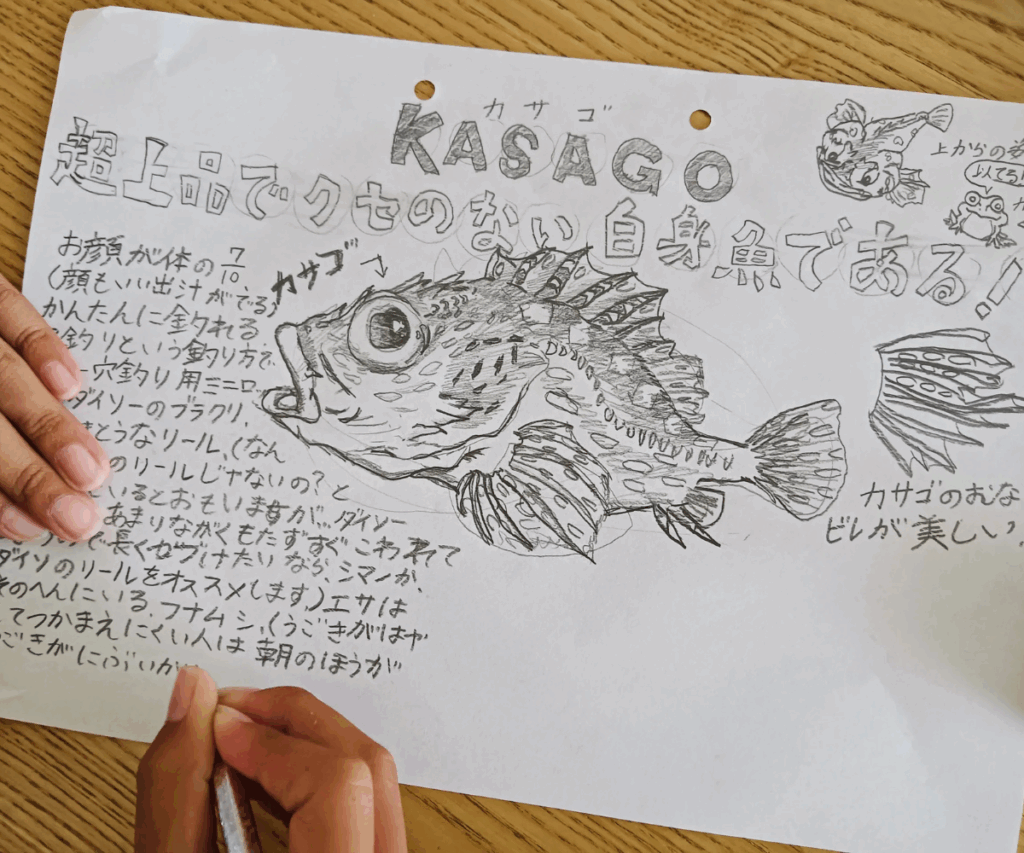 カサゴ
KASAGO
超上品でクセのない白身魚である!
上からの姿
似てる!
カサゴ
お顔が体の7/10、
(顔もいい出汁がでる)
かんたんに釣れる
釣りという釣り方で、
穴釣り用ミニロ
ダイソーのブラクリ、
とうなリール、(なん
のリールじゃないの?と
いるとおもいますが、ダイソー
あまりながくもたずすぐこわれて
で長くせづけたいなら、シマノか、
ダイソのリールをオススメします。)エサは
そのへんにいる、フナムシ、(うごきがはや
てつかまえにくい人は朝のほうが
ごきがにぶいが
カサゴのおな
ビレが美しい、